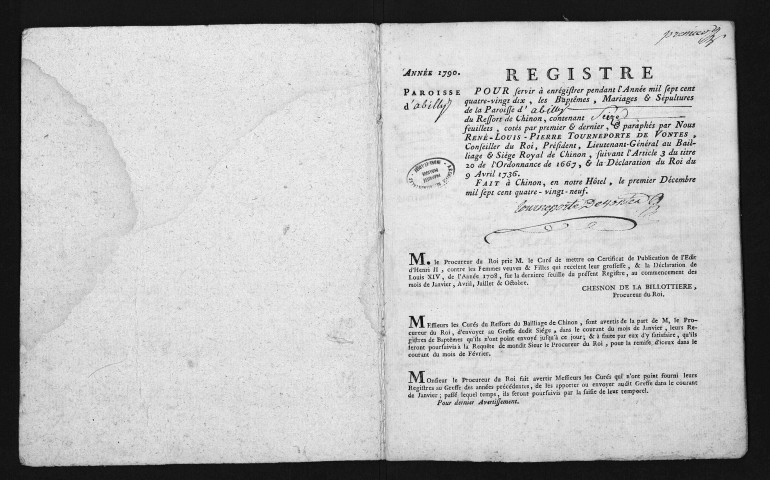 premier
ANNÉE 1790.
REGISTRE
PAROISSE
d'abilly
POUR servir à enrégistrer pendant l'Année mil sept cent
quatre-vingt dix, les Baptêmes, Mariages & Sépultures
de la Paroisse d'abilly
du Ressort de Chinon, contenant Seize
feuillets, cotés par premier & dernier, & paraphés par Nous
RENÉ-LOUIS-PIERRE TOURNEPORTE DE VONTES,
Conseiller du Roi, Président, Lieutenant-Général au Bail-
liage & Siége Royal de Chinon, suivant l'Article 3 du titre
20 de l'Ordonnance de 1667, & la Déclaration du Roi du
9 Avril 1736.
FAIT à Chinon, en notre Hôtel, le premier Décembre
mil sept cent quatre-vingt-neuf.
Tourneporte De Vontes
M. le Procureur du Roi prie M. le Curé de mettre un Certificat de Publication de l'Edit
d'Henri II, contre les Femmes veuves & Filles qui recelent leur grossesse, & la Déclaration de
Louis XIV, de l'Année 1708, sur la derniere feuille du présent Registre, au commencement des
mois de Janvier, Avril, Juillet & Octobre.
CHESNON DE LA BILLOTTIERE,
Procureur du Roi.
MESSIEURS les Curés du Ressort du Bailliage de Chinon, sont avertis de la part de M. le Pro-
cureur du Roi, d'envoyer au Greffe dudit Siége, dans le courant du mois de Janvier, leurs Re-
gistres de Baptêmes qu'ils n'ont point envoyé jusqu'à ce jour; & à faute par eux d'y satisfaire, qu'ils
seront poursuivis à la Requête de mondit Sieur le Procureur du Roi, pour la remise d'iceux dans le
courant du mois de Février.
MONSIEUR le Procureur du Roi fait avertir Messieurs les Curés qui n'ont point fourni leurs
Registres au Greffe des années précédentes, de les apporter ou envoyer audit Greffe dans le courant
de Janvier; passé lequel temps, ils seront poursuivis par la saisie de leur temporel.
Pour dernier Avertissement.